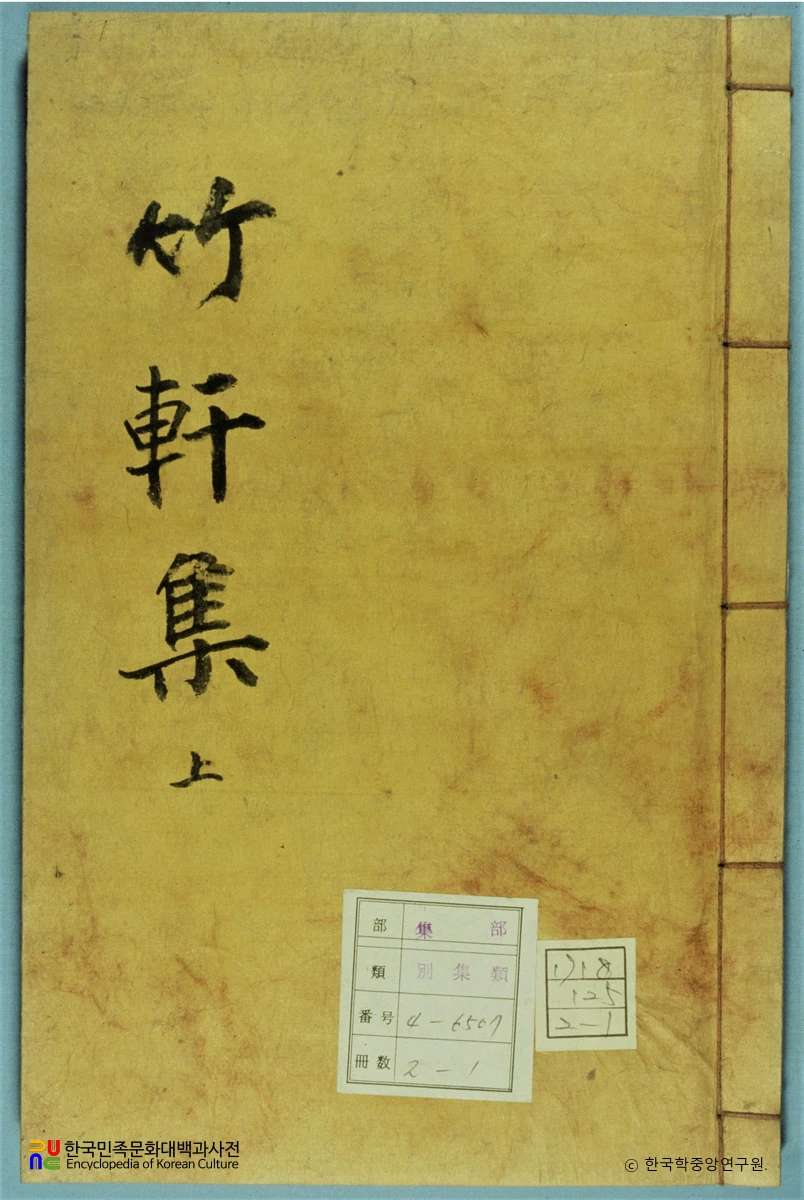 竹軒集
上
部 集部
類 別集類
番号 4-6507
冊数 2-1
1718
125
2-1
한국민족문화대백과사전
Encyclopedia of Korean Culture
ⓒ 한국학중앙연구원.